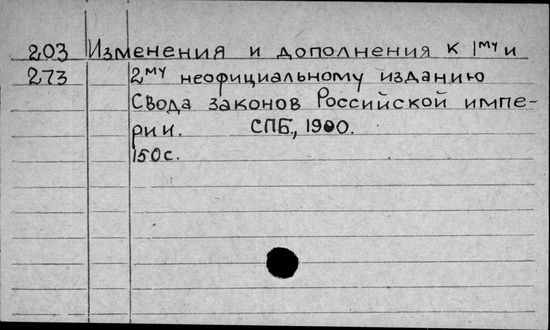 203 Изменения и дополнения к 1му и
273 2му неофициальному изданию
Свода законов Российской импе-
рии. СПБ., 1900.
150с.